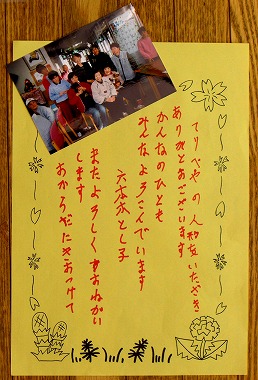 てりべやの人形をいただき
ありがとおございます
かんなのひとも
みんなよろこんでいます
六本木とし子
またよろしくおおねがい
します
おからだにきおつけて